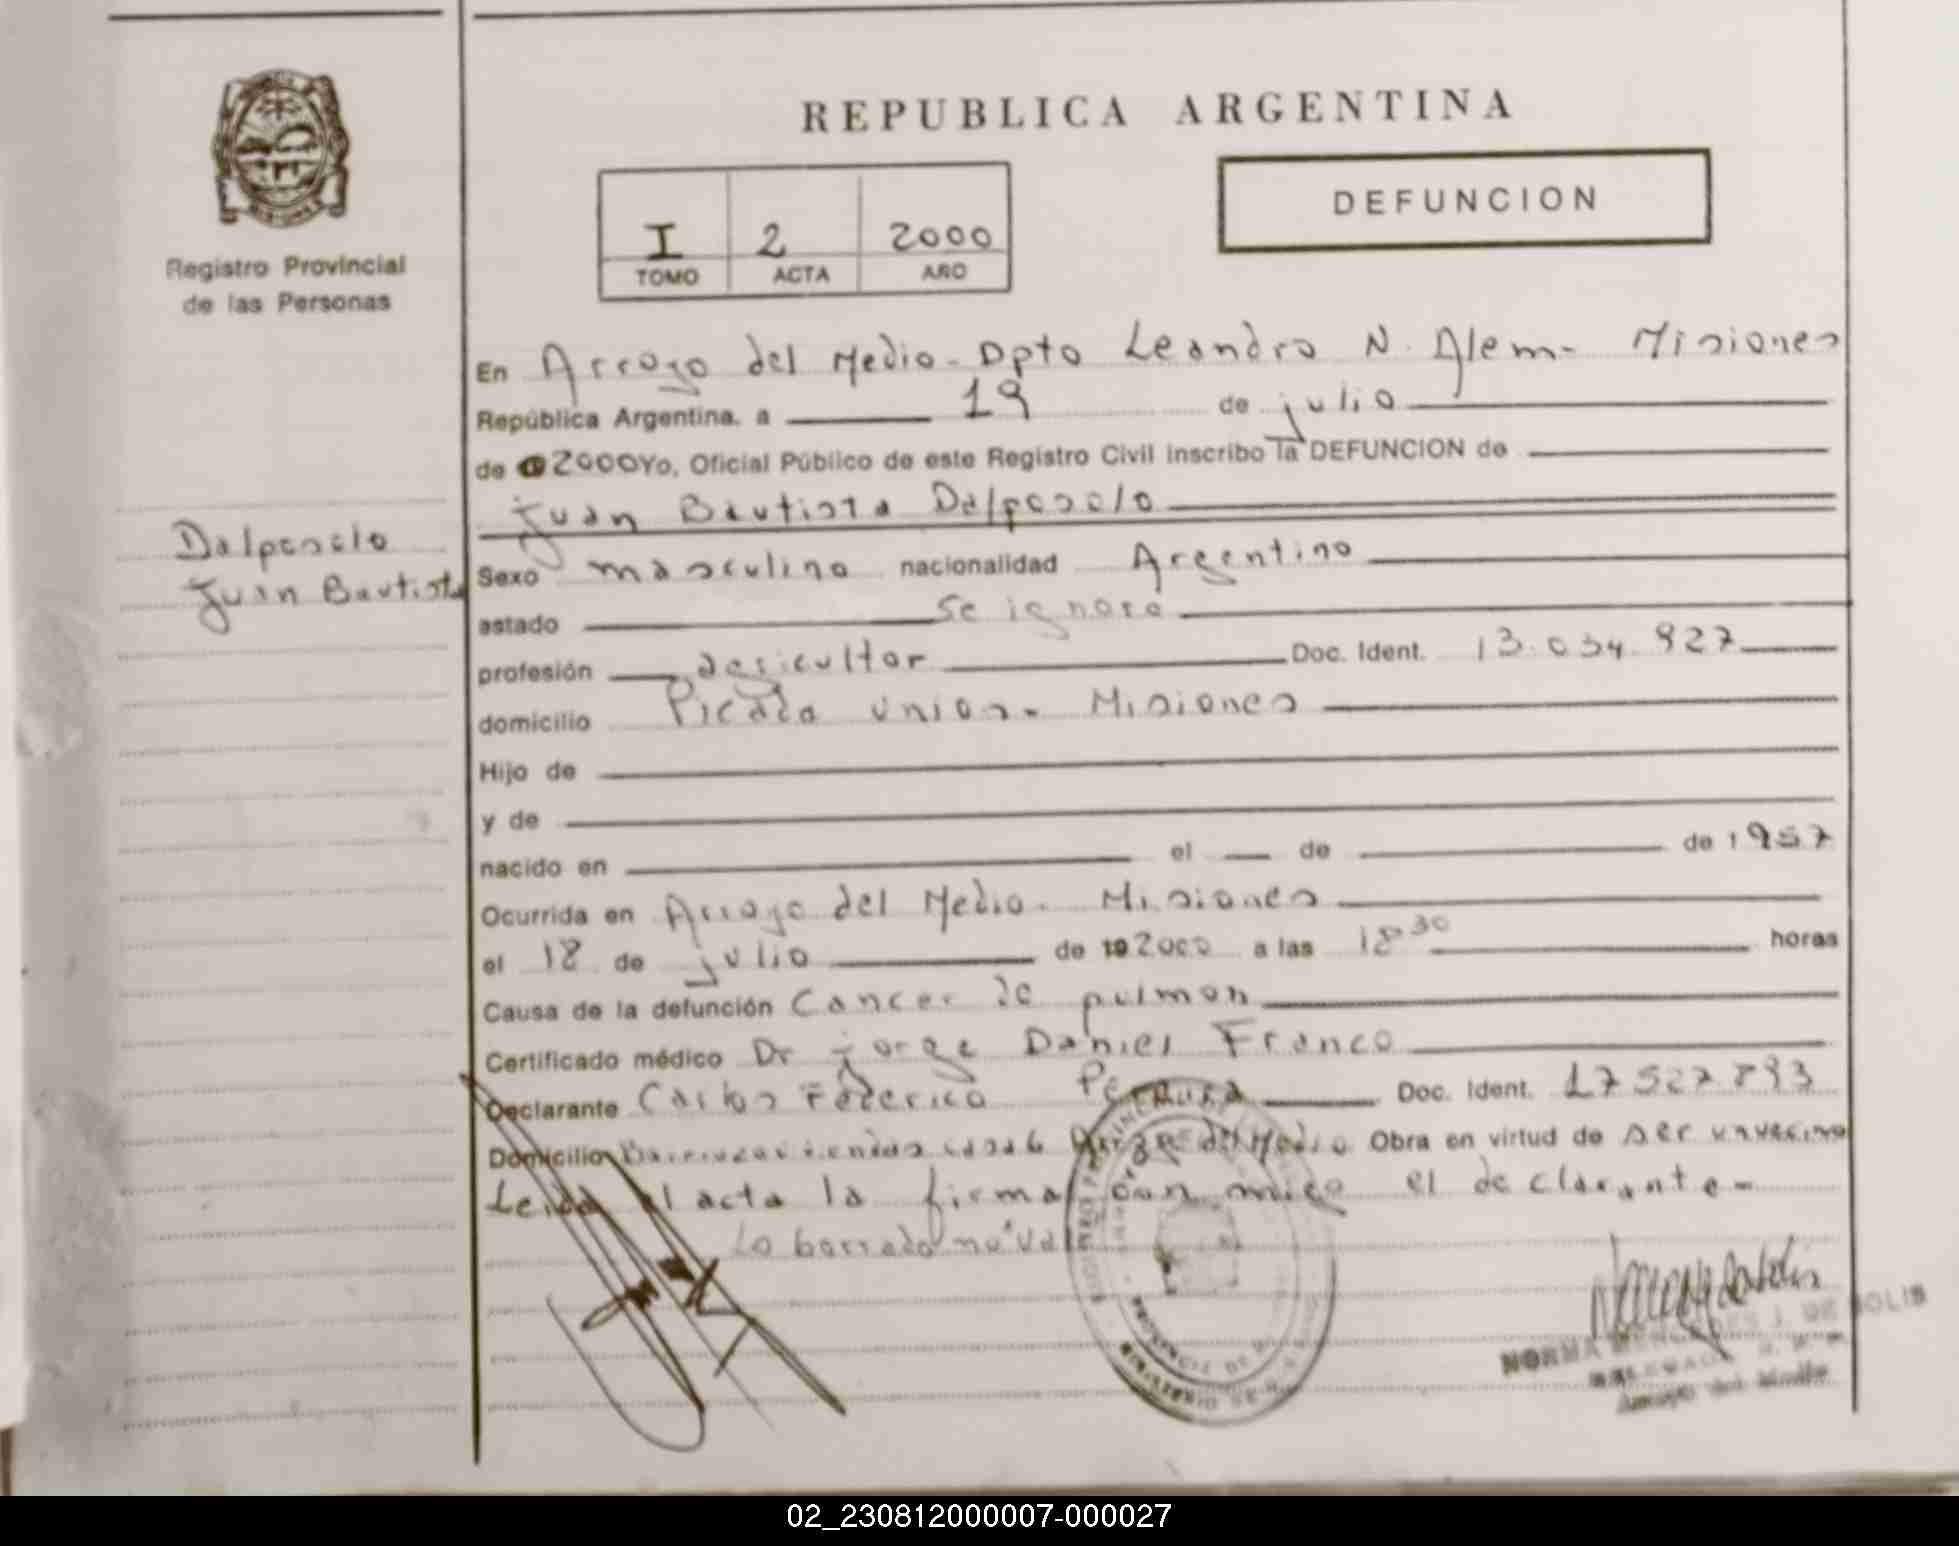 REPUBLICA ARGENTINA
DEFUNCION
I 2 2000
TOMO ACTA AÑO
Registro Provincial
de las Personas
Dalposolo
Juan Bautista
En Arroyo del Medio - Dpto Leandro N. Alem - Misiones
República Argentina, a 19 de julio
de 2000 Yo, Oficial Público de este Registro Civil inscribo la DEFUNCION de
Juan Bautista Dalposolo
Sexo masculino nacionalidad Argentino
estado se ignora
profesión agricultor Doc. Ident. 13.034.927
domicilio Picada union - Misiones
Hijo de
y de
nacido en el de de 1957
Ocurrida en Arroyo del Medio - Misiones
el 18 de julio de 19 2000 a las 18 30 horas
Causa de la defunción Cancer de pulmon
Certificado médico Dr Jorge Daniel Franco
Declarante Carlos Federico Doc. Ident. 17527893
Domicilio Arroyo del Medio Obra en virtud de ser un vecino
Leida el acta la firma con migo el declarante -
Lo borrado no vale
PROVINCIA DE
MINISTERIO DE
NORMA MERCEDES J. DE SOLIS
DELEGADA R. P. P.
Arroyo del Medio
02_230812000007-000027